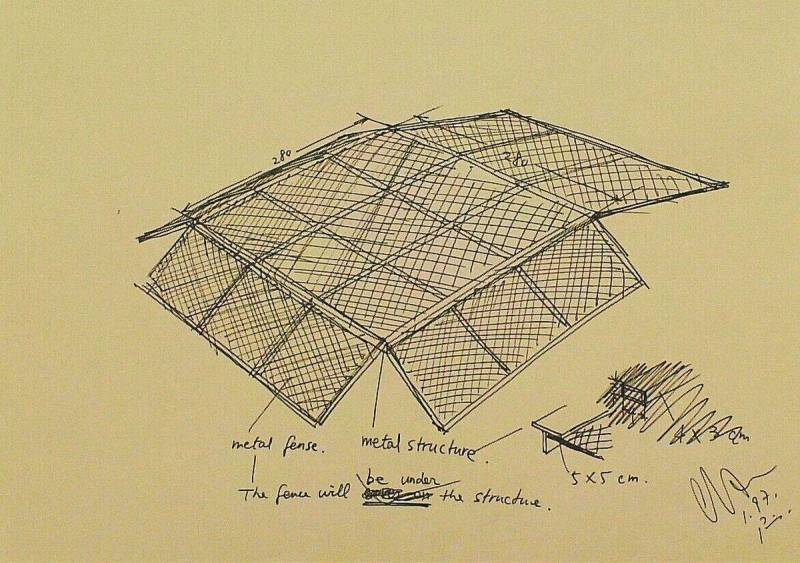 280
280
metal fense.
metal structure.
4 x 3 cm
5 x 5 cm.
be under
The fence will the structure.
97.